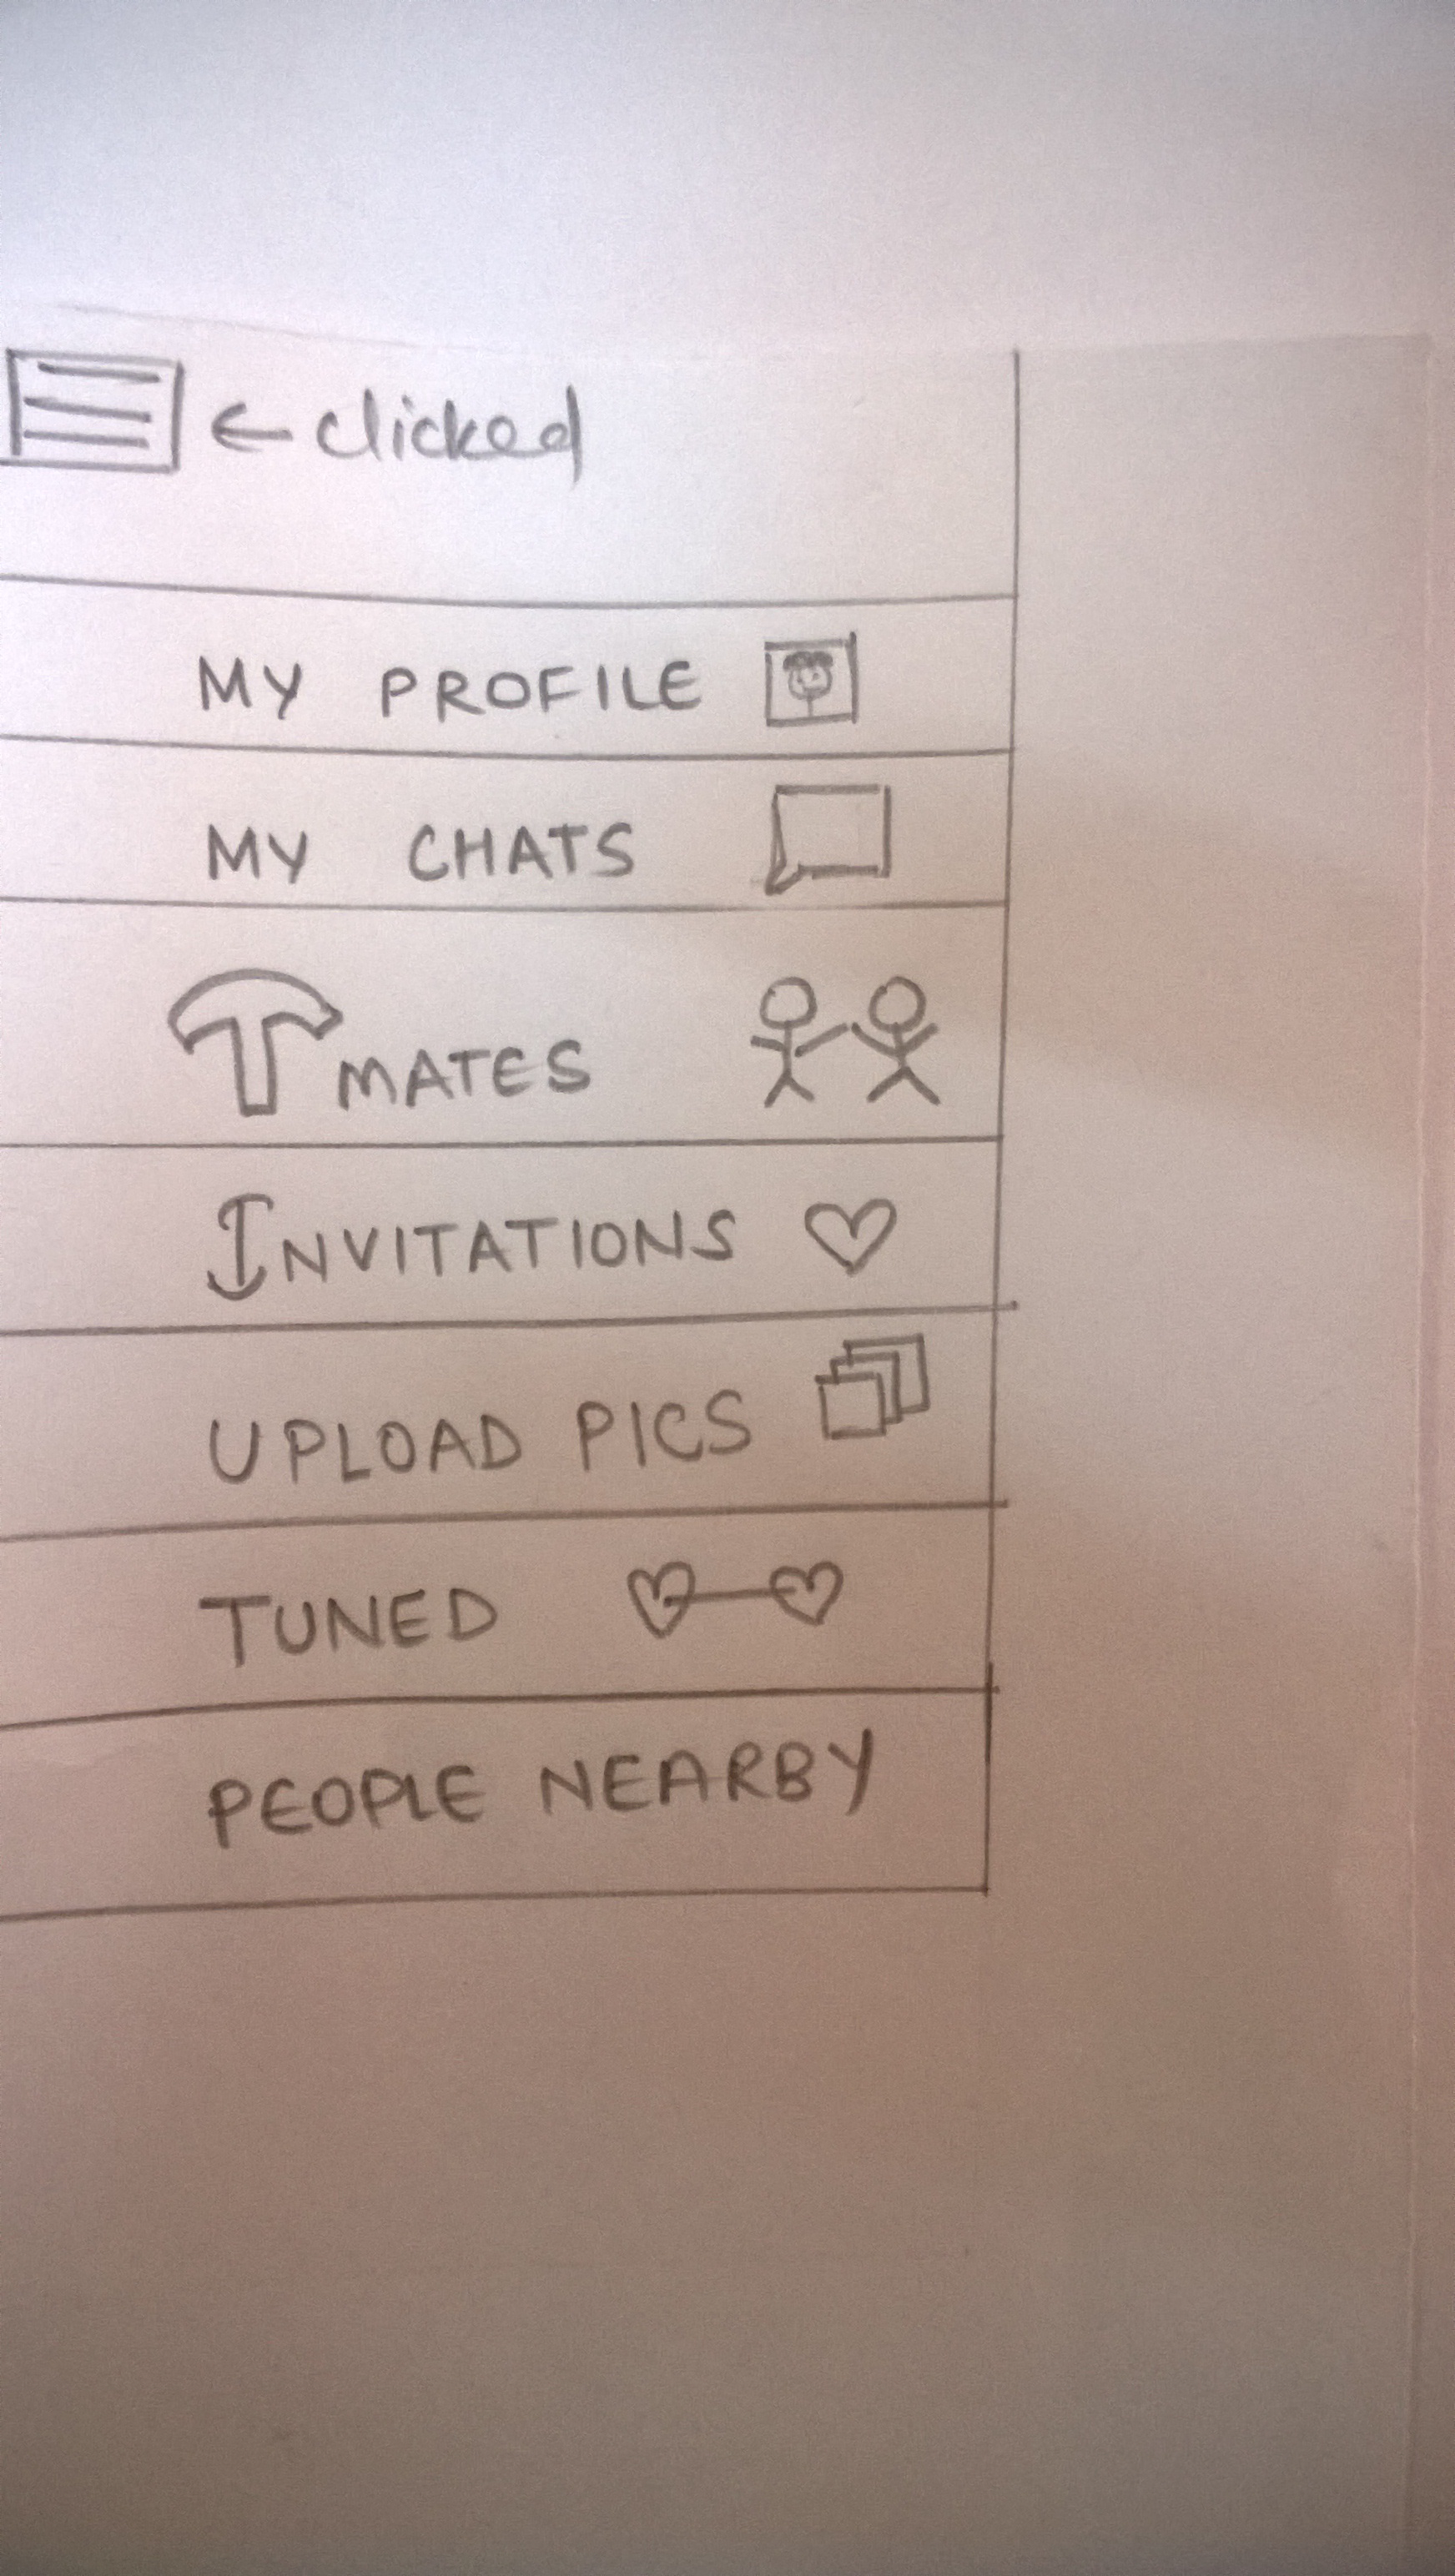 ← clicked
MY PROFILE
MY CHATS
TMATES
INVITATIONS
UPLOAD PICS
TUNED
PEOPLE NEARBY